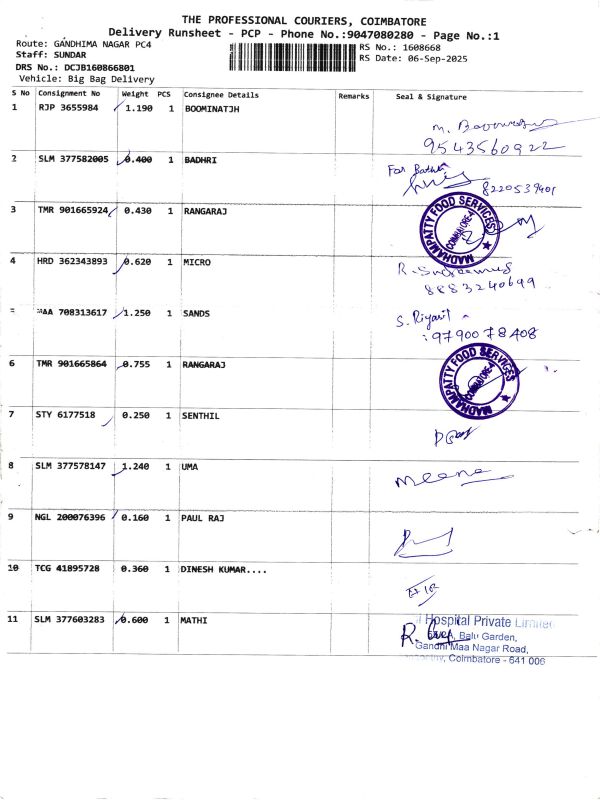 THE PROFESSIONAL COURIERS, COIMBATORE
Delivery Runsheet - PCP - Phone No.:9047080280 - Page No.:1
Route: GANDHIMA NAGAR PC4
RS No.: 1608668
Staff: SUNDAR
RS Date: 06-Sep-2025
DRS No.: DCJB160866801
Vehicle: Big Bag Delivery
S No Consignment No Weight PCS Consignee Details Remarks Seal & Signature
1 RJP 3655984 1.190 1 BOOMINATJH
9543560922
2 SLM 377582005 0.400 1 BADHRI
For Bathri
8220539401
3 TMR 901665924 0.430 1 RANGARAJ
MADHAMPATTY FOOD SERVICES
COIMBATORE-4
4 HRD 362343893 0.620 1 MICRO
8883240699
MAA 708313617 1.250 1 SANDS
S. Riyasil
: 9790078408
6 TMR 901665864 0.755 1 RANGARAJ
MADHAMPATTY FOOD SERVICES
COIMBATORE-4
7 STY 6177518 0.250 1 SENTHIL
8 SLM 377578147 1.240 1 UMA
meena
9 NGL 200076396 0.160 1 PAUL RAJ
10 TCG 41895728 0.360 1 DINESH KUMAR....
11 SLM 377603283 0.600 1 MATHI
Hospital Private Limited
Balu Garden,
Gandhi Maa Nagar Road,
Coimbatore - 641 006